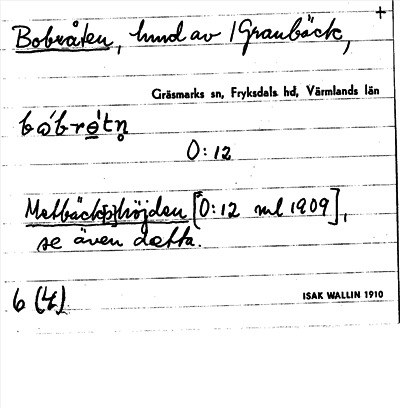 +
Bobråten, hund av /Graubäck,
Gräsmarks sn, Fryksdals hd, Värmlands län
O: 12
Metbäck[s]höjden [O: 12 ml 1909],
se även detta.
6 (4)
ISAK WALLIN 1910